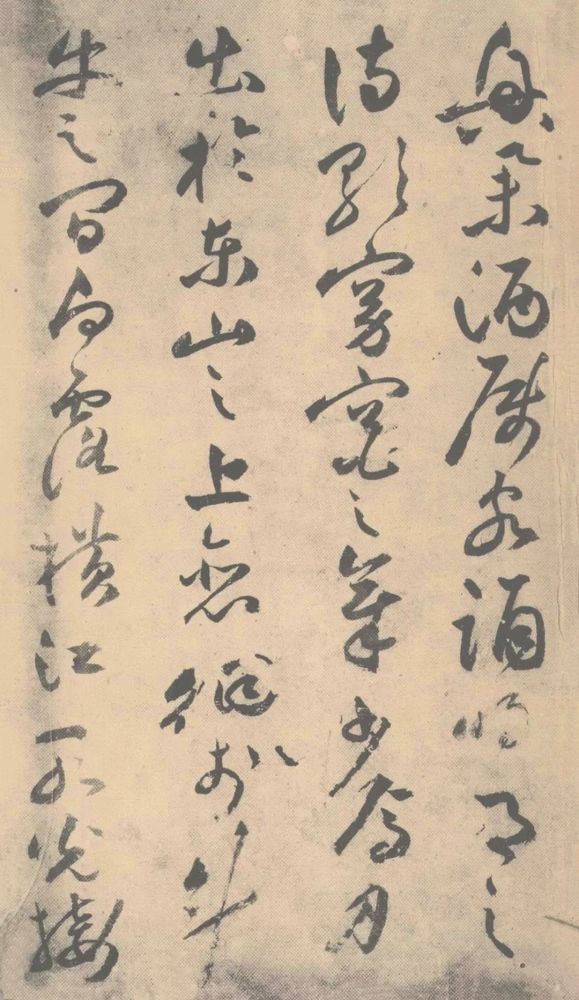 興舉酒屬客誦明月之
詩歌窈窕之章少焉月
出於東山之上徘徊於斗
牛之間白露橫江水光接